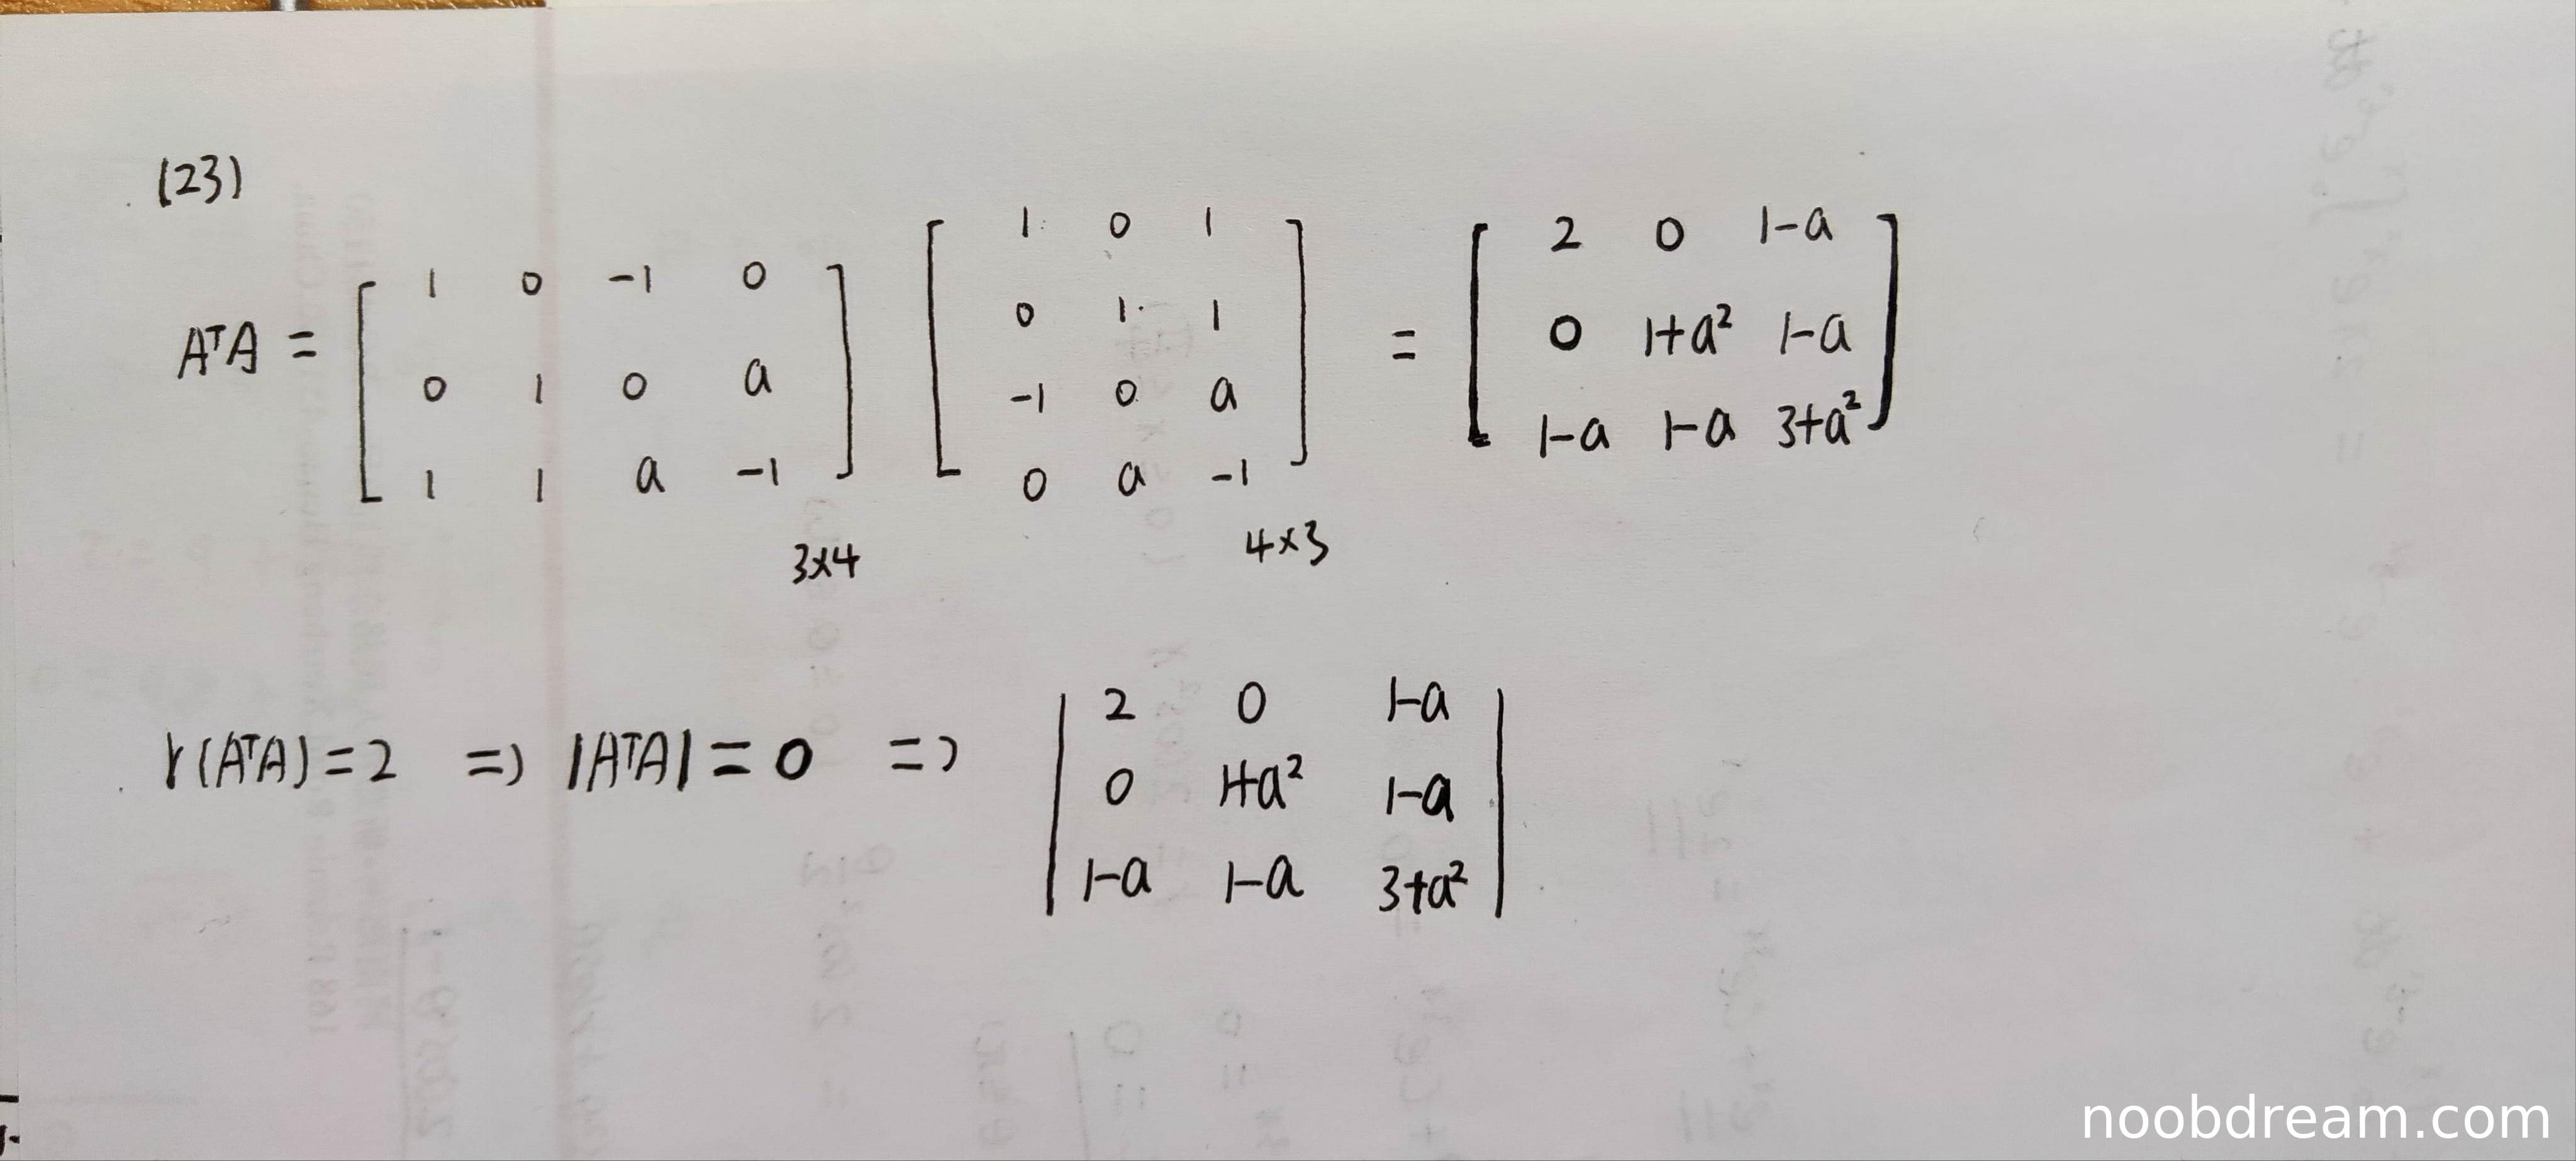 (23)
AᵀA = [ 1 0 -1 0 ; 0 1 0 a ; 1 1 a -1 ] 3×4 [ 1 0 1 ; 0 1 1 ; -1 0 a ; 0 a -1 ] 4×3 = [ 2 0 1-a ; 0 1+a² 1-a ; 1-a 1-a 3+a² ]
r(AᵀA) = 2 => |AᵀA| = 0 => | 2 0 1-a ; 0 1+a² 1-a ; 1-a 1-a 3+a² |
noobdream.com